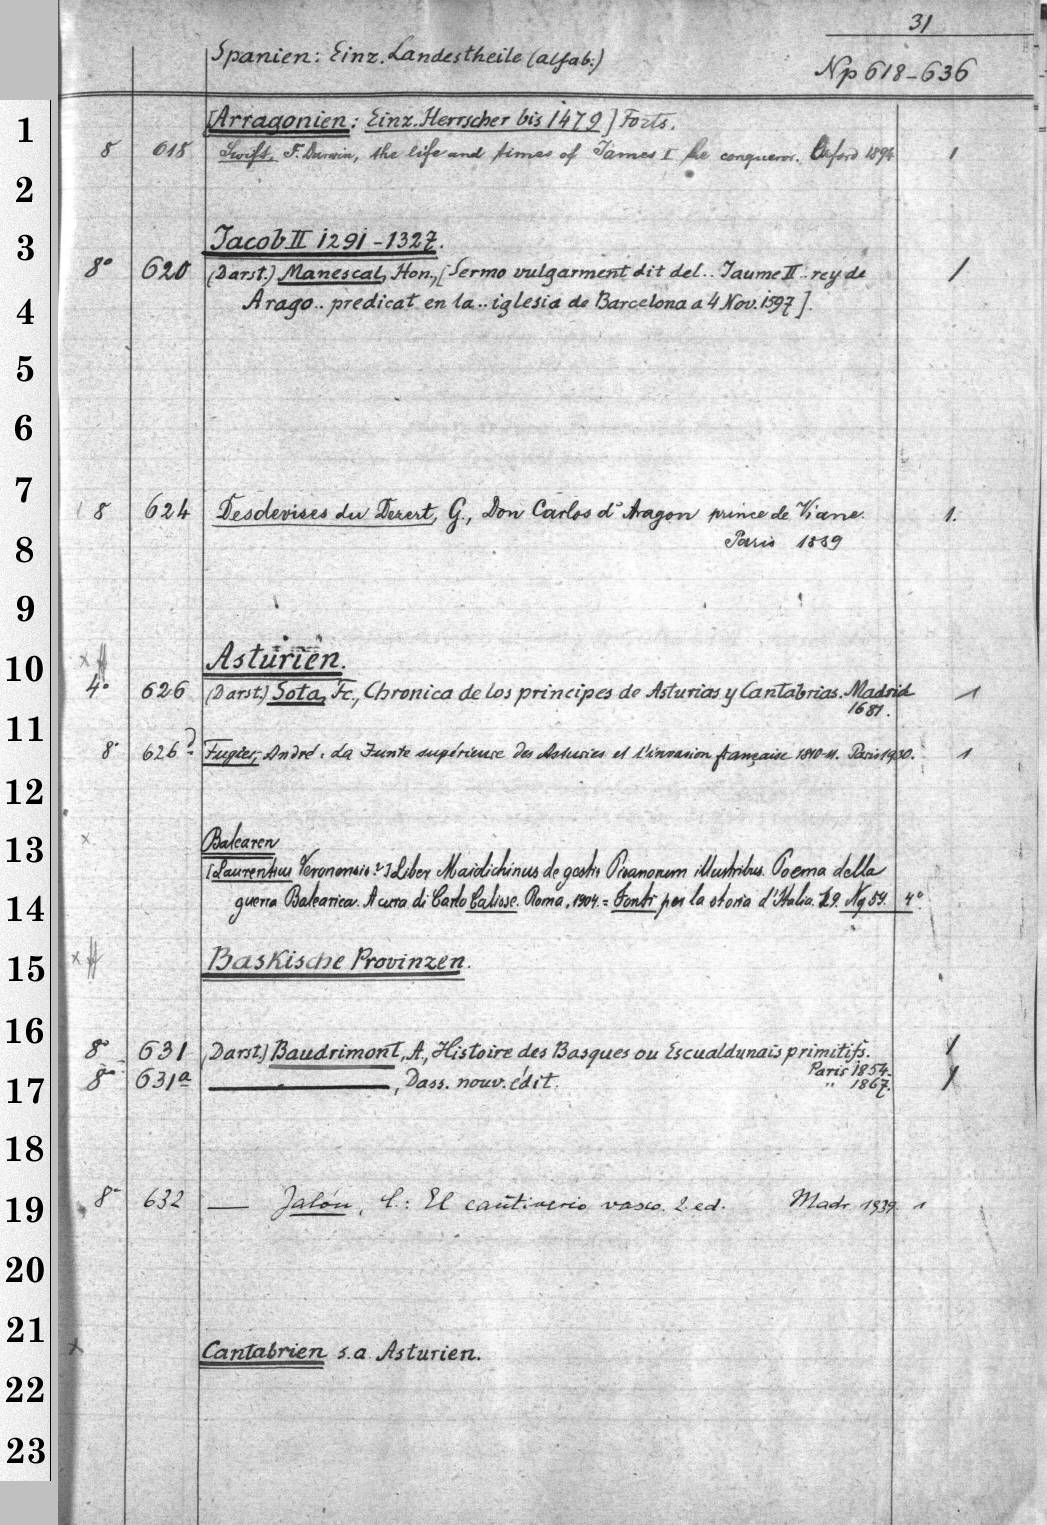 31
Spanien: Einz. Landestheile (alfab.)
Np 618-636
1
[Arragonien: Einz. Herrscher bis 1479] Forts.
8 618 Swift, F. Darwin, the life and times of James I the conqueror. Oxford 1894 1
2
Jacob II 1291-1327.
3
8° 620 (Darst.) Manescal, Hon., [Sermo vulgarment dit del.. Jaume II.. rey de 1
Arago.. predicat en la .. iglesia de Barcelona a 4 Nov. 1597].
4
5
6
7
8 624 Desdevises du Dezert, G., Don Carlos d'Aragon prince de Viane. 1.
Paris 1889
8
9
Asturien.
10
4° 626 (Darst.) Sota, Fc., Chronica de los principes de Asturias y Cantabrias. Madrid 1
1681.
11
8° 626 Fugier, André: La Junte supérieure des Asturies et l'invasion française 1810-11. Paris 1930. 1
12
Balearen
13
[Laurentius Veronensis?] Liber Maiolichinus de gestis Pisanorum illustribus. Poema della
guerra Balearica. A cura di Carlo Calisse. Roma, 1904. = Fonti per la storia d'Italia. 29. Nq 59. 4°
14
Baskische Provinzen.
15
16
8° 631 (Darst.) Baudrimont, A., Histoire des Basques ou Escualdunais primitifs. 1
Paris 1854.
8° 631a ———, Dass. nouv. édit. " 1867. 1
17
18
8° 632 — Jalón, C.: El cautiverio vasco. 2. ed. Madr. 1939. 1
19
20
21
Cantabrien s. a. Asturien.
22
23